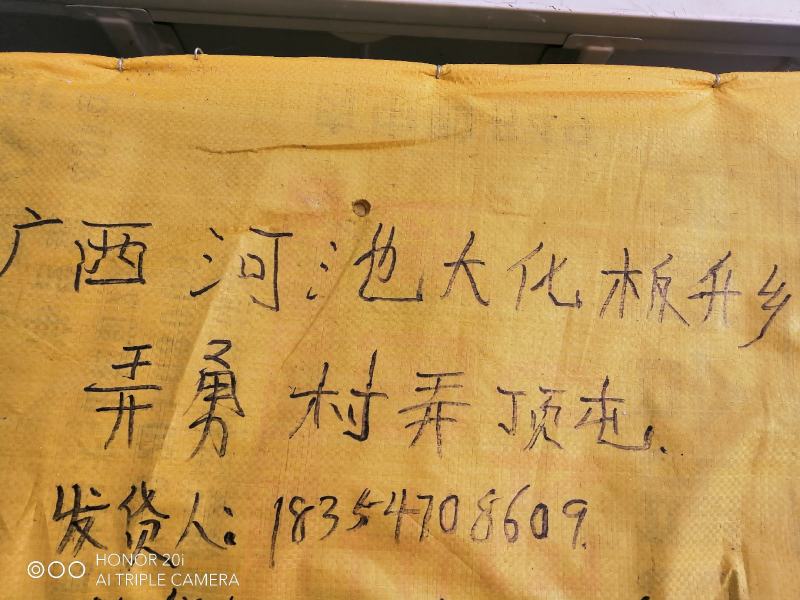 广西河池大化板升乡
弄勇村弄顶屯.
发货人:18354708609.
HONOR 20i
AI TRIPLE CAMERA